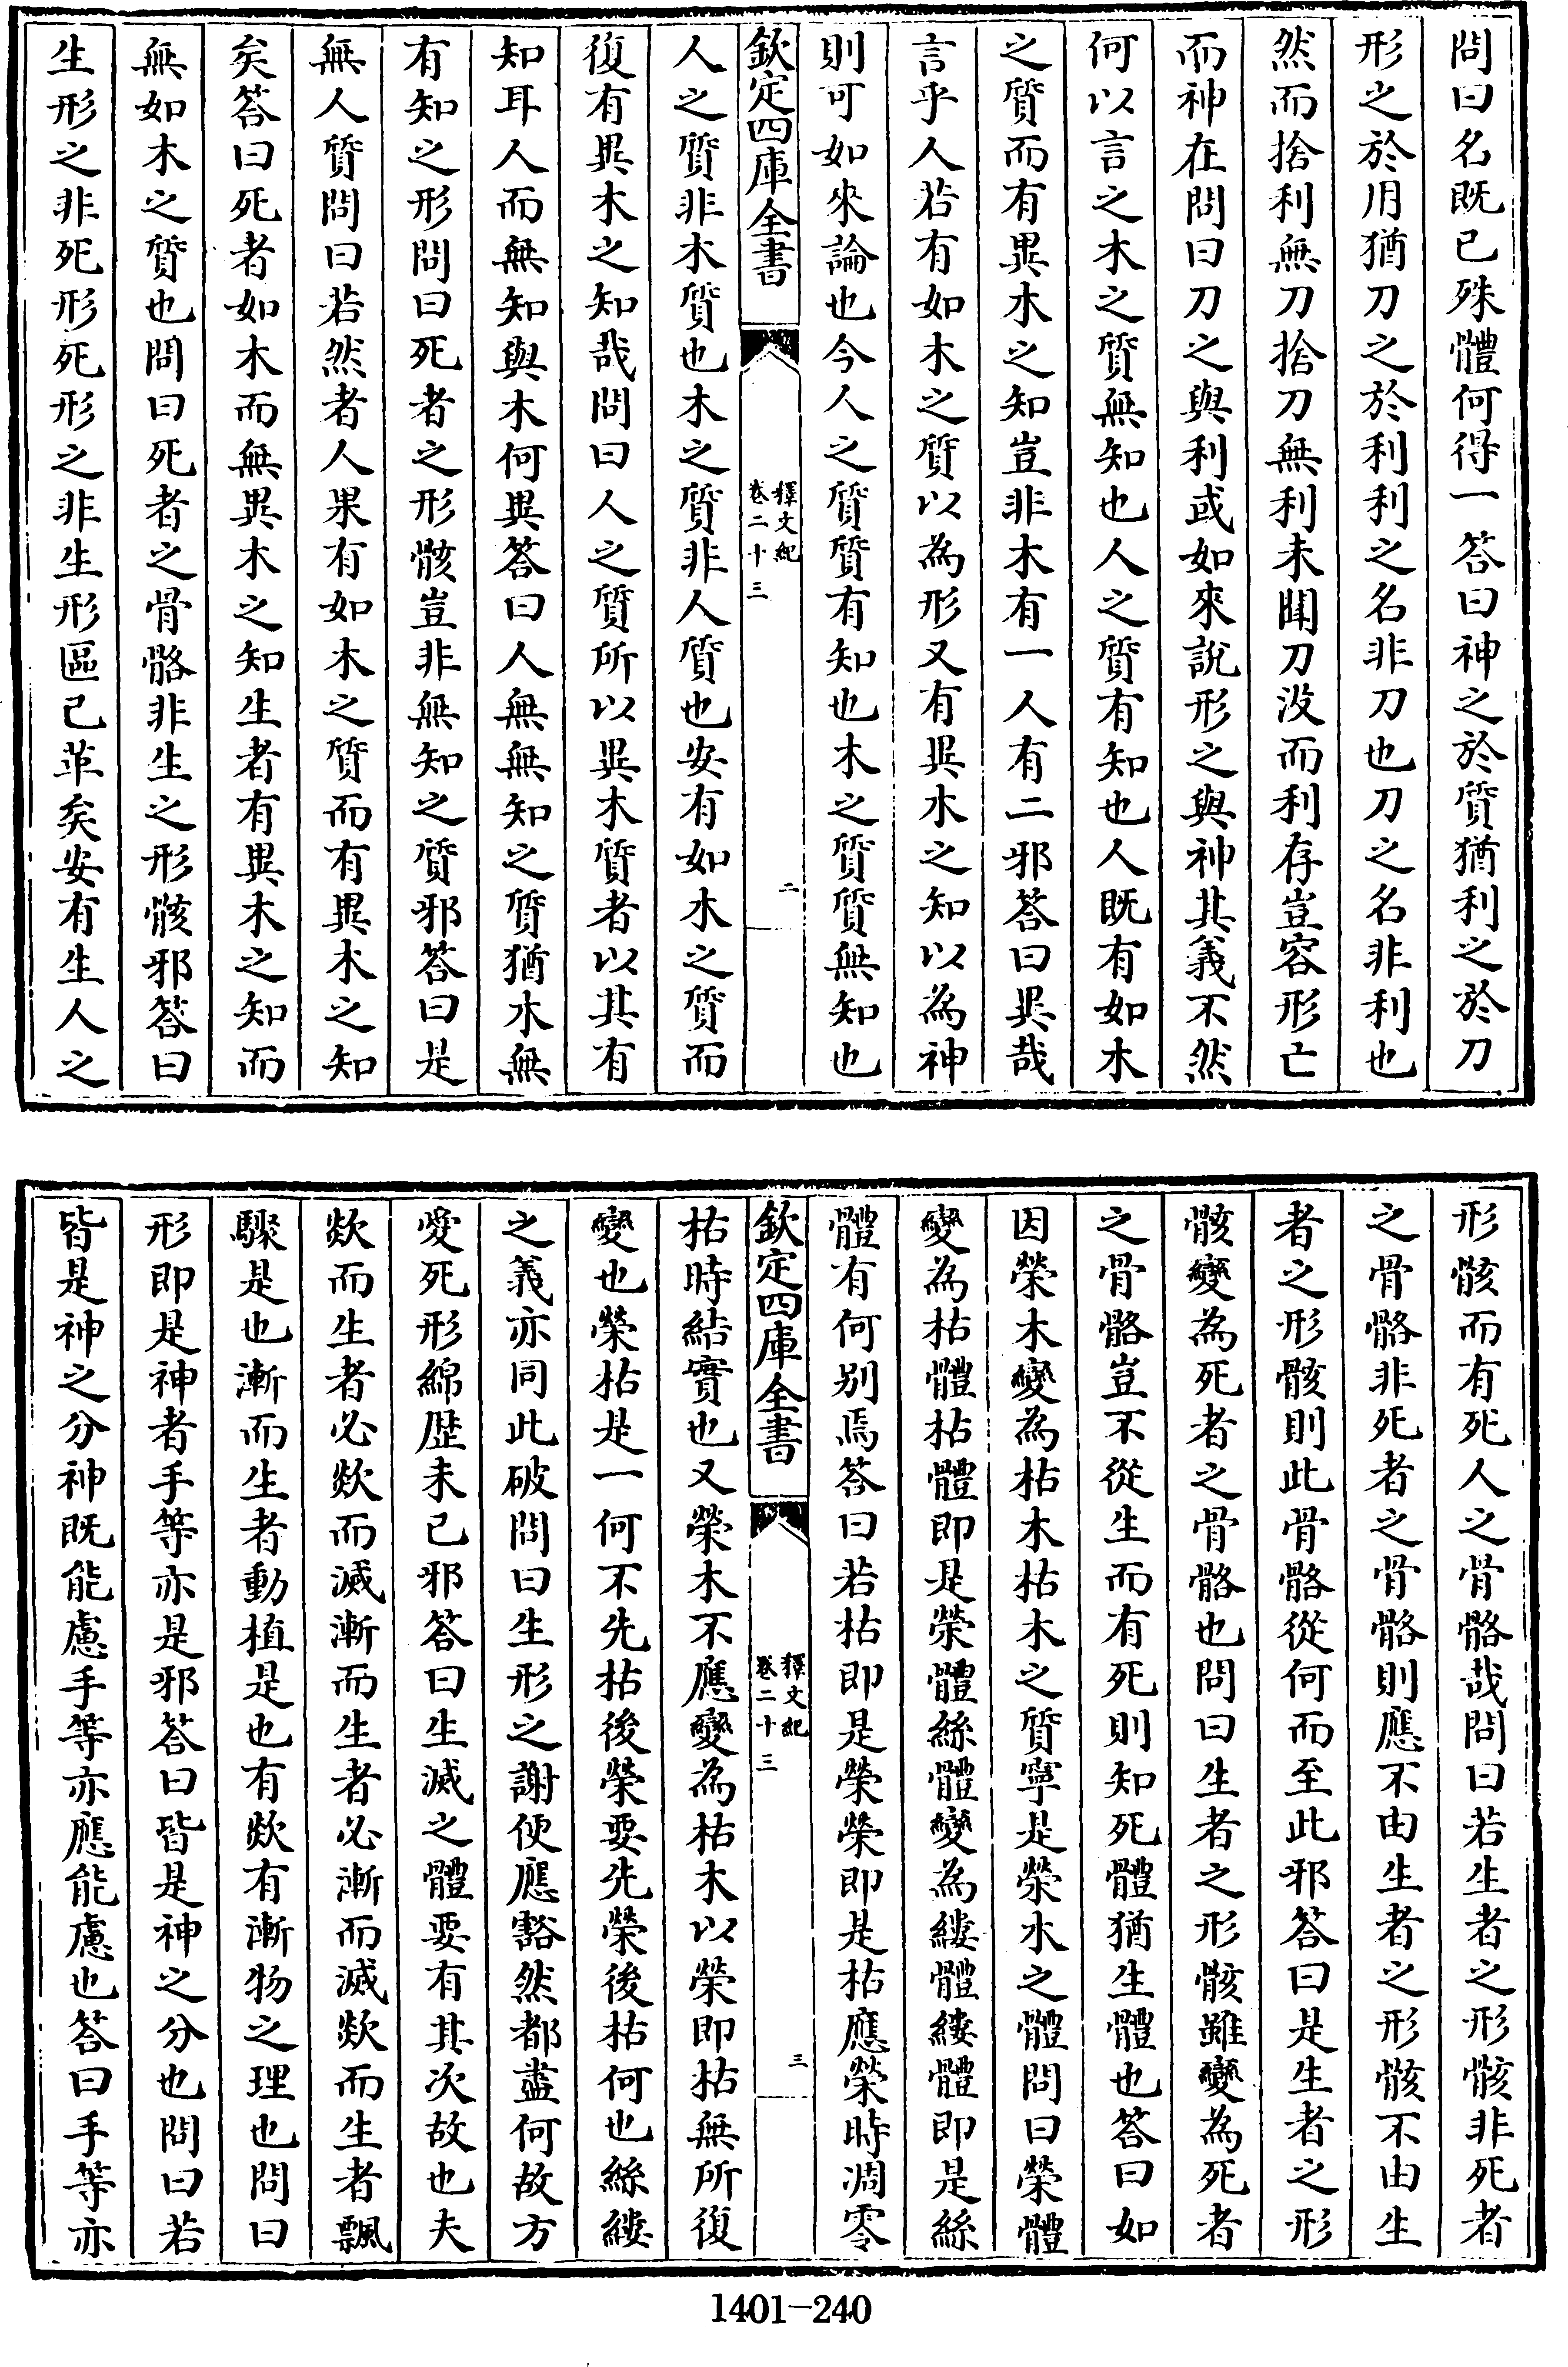 問曰名既已殊體何得一答曰神之於質猶利之於刀
形之於用猶刀之於利利之名非刀也刀之名非利也
然而捨利無刀捨刀無利未聞刀沒而利存豈容形亡
而神在問曰刀之與利或如來說形之與神其義不然
何以言之木之質無知也人之質有知也人既有如木
之質而有異木之知豈非木有一人有二邪答曰異哉
言乎人若有如木之質以為形又有異木之知以為神
則可如來論也今人之質質有知也木之質質無知也
欽定四庫全書
釋文紀
卷二十三
二
人之質非木質也木之質非人質也安有如木之質而
復有異木之知哉問曰人之質所以異木質者以其有
知耳人而無知與木何異答曰人無無知之質猶木無
有知之形問曰死者之形骸豈非無知之質邪答曰是
無人質問曰若然者人果有如木之質而有異木之知
矣答曰死者如木而無異木之知生者有異木之知而
無如木之質也問曰死者之骨骼非生之形骸邪答曰
生形之非死形死形之非生形區已革矣安有生人之
形骸而有死人之骨骼哉問曰若生者之形骸非死者
之骨骼非死者之骨骼則應不由生者之形骸不由生
者之形骸則此骨骼從何而至此邪答曰是生者之形
骸變為死者之骨骼也問曰生者之形骸雖變為死者
之骨骼豈不從生而有死則知死體猶生體也答曰如
因榮木變為枯木枯木之質寧是榮木之體問曰榮體
變為枯體枯體即是榮體絲體變為縷體縷體即是絲
體有何別焉答曰若枯即是榮榮即是枯應榮時凋零
欽定四庫全書
釋文紀
卷二十三
三
枯時結實也又榮木不應變為枯木以榮即枯無所復
變也榮枯是一何不先枯後榮要先榮後枯何也絲縷
之義亦同此破問曰生形之謝便應豁然都盡何故方
受死形綿歷未已邪答曰生滅之體要有其次故也夫
欻而生者必欻而滅漸而生者必漸而滅欻而生者飄
驟是也漸而生者動植是也有欻有漸物之理也問曰
形即是神者手等亦是邪答曰皆是神之分也問曰若
皆是神之分神既能慮手等亦應能慮也答曰手等亦
1401-240